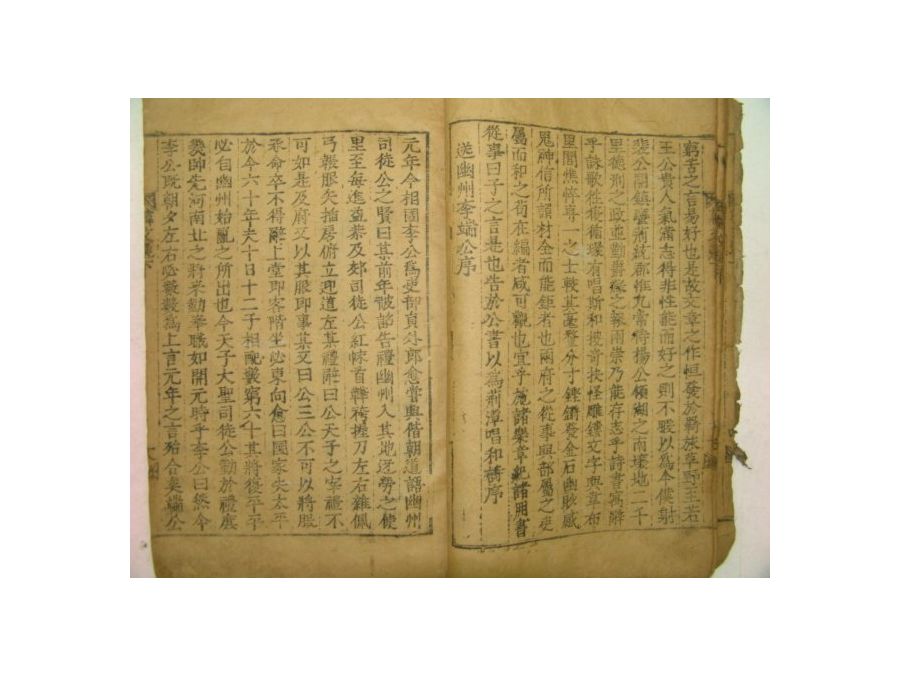 窮苦之言易好也是故文章之作恒發於羇旅草野至若
王公貴人氣滿志得非性能而好之則不暇以爲今僕射
裴公開鎮蠻荊統郡惟九常侍楊公領湖之南壤地二千
里德刑之政並勤爵祿之報兩崇乃能存志乎詩書寓辭
乎詠歌往復循環有唱斯和搜奇抉怪雕鏤文字與韋布
里閭憔悴專一之士較其毫釐分寸鏗鏘發金石幽眇感
鬼神信所謂材全而能鉅者也兩府之從事與部屬之吏
屬而和之苟在編者咸可觀也宜乎施諸樂章紀諸冊書
從事曰子之言是也告於公書以爲荊潭唱和詩序
送幽州李端公序
元年今相國李公爲吏部員外郎愈嘗與偕朝道語幽州
司徒公之賢曰某前年被詔告禮幽州入其地迓勞之使
里至每進益恭及郊司徒公紅帓首鞾袴握刀左右雜佩
弓韔服矢插房俯立迎道左某禮辭曰公天子之宰禮不
可如是及府又以其服即事某又曰公三公不可以將服
承命卒不得辭上堂即客階坐必東向愈曰國家失太平
於今六十年夫十日十二子相配數窮六十其將復平平
必自幽州始亂之所出也今天子大聖司徒公勤於禮庶
幾帥先河南北之將來勤奉職如開元時乎李公曰然今
李公旣朝夕左右必數數爲上言元年之言殆合矣端公